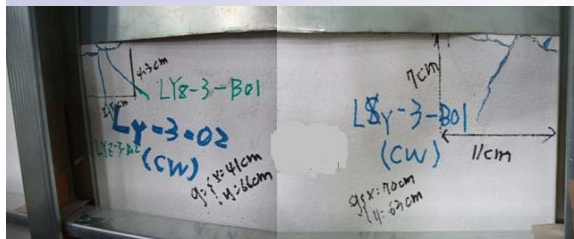 4.3cm
LY8-3-B01
Ly-3-02
(CW)
x=41cm
y=66cm
7cm
L8y-3-B01
(CW)
11cm
x=70cm
y=63cm